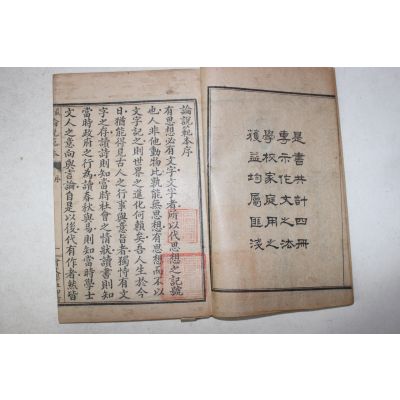 是書共計四冊
專示作文之法
學校家庭用之
獲益均屬匪淺
論說範本序
有思想必有文字文字者所以代思想之記號
也人非他動物比孰能無思想有思想而不以
文字記之則世界之進化何賴矣吾人生於今
日猶能得見古人之行事與意旨者獨恃有文
字之存讀詩則知當時社會之情狀讀書則知
當時政府之行為讀春秋與易則知當時學士
文人之意向與言論自是以後代有作者然皆
序